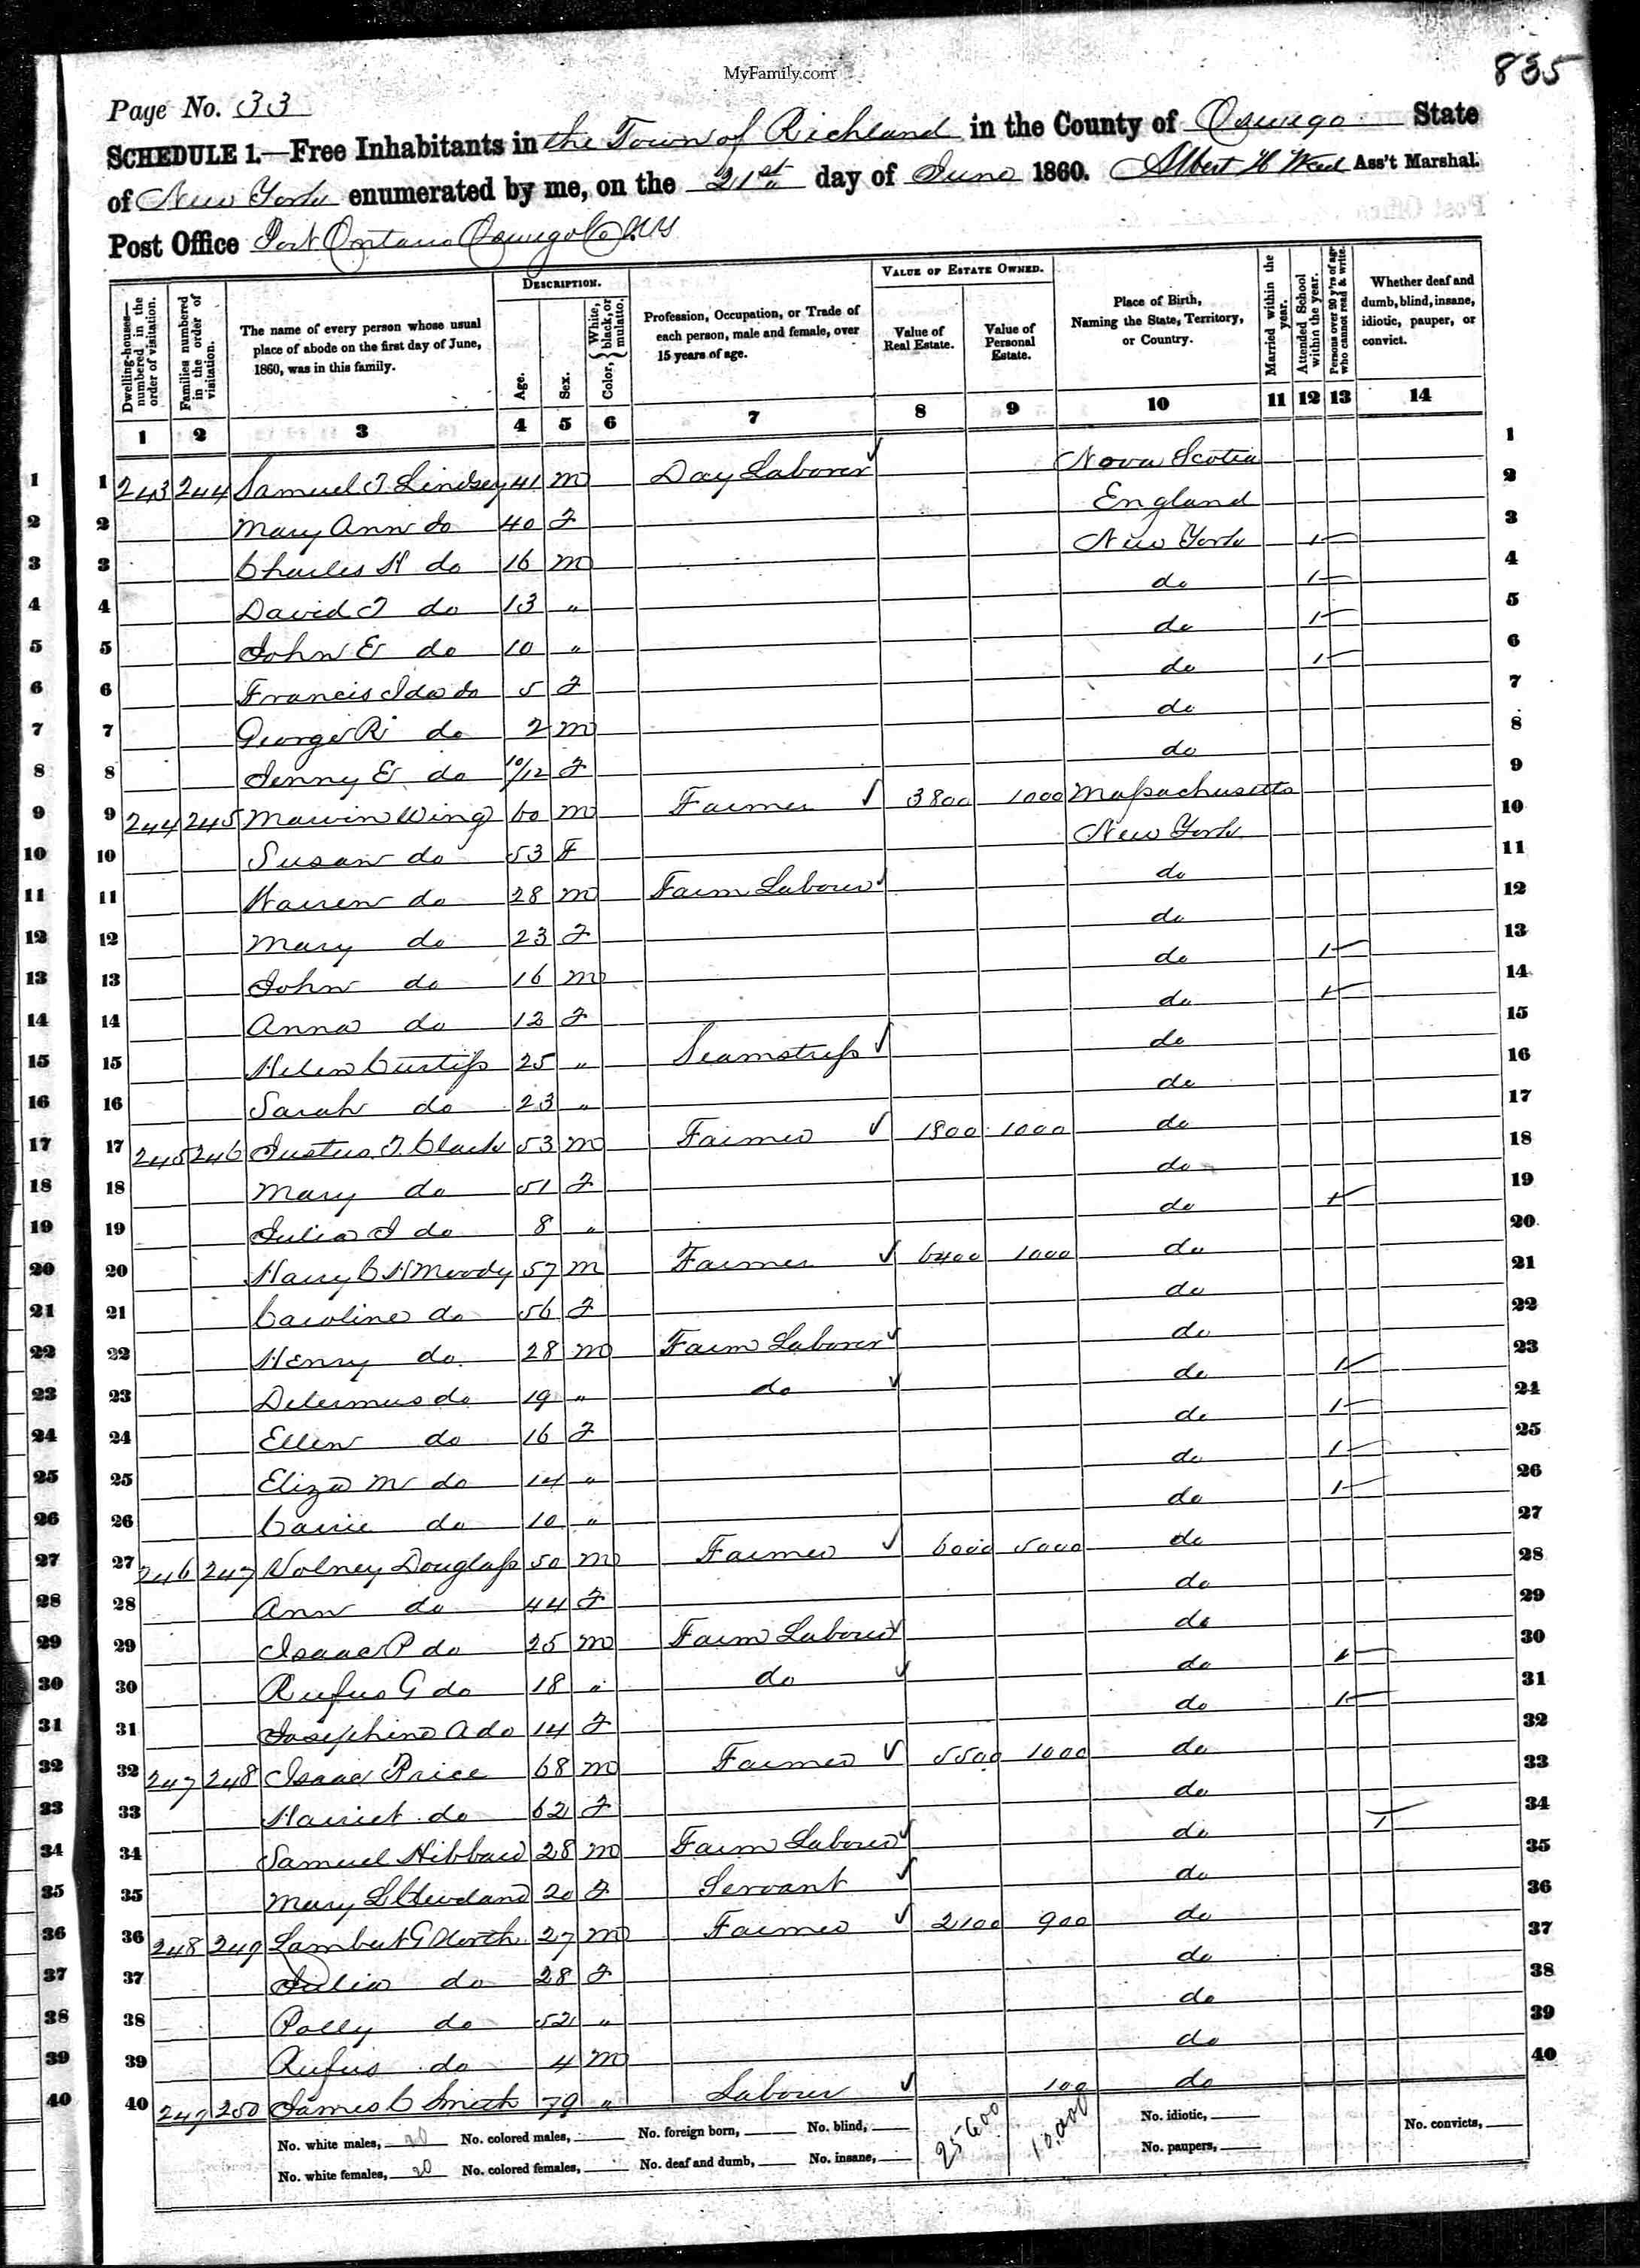 MyFamily.com
835
Page No. 33
SCHEDULE 1.—Free Inhabitants in the Town of Richland in the County of Oswego State
of New York enumerated by me, on the 21st day of June 1860. Albert H Weed Ass't Marshal.
Post Office Port Ontario Oswego Co NY
Dwelling-houses—numbered in the order of visitation.
Families numbered in the order of visitation.
The name of every person whose usual place of abode on the first day of June, 1860, was in this family.
DESCRIPTION.
Age.
Sex.
Color, { White, black, or mulatto.
Profession, Occupation, or Trade of each person, male and female, over 15 years of age.
VALUE OF ESTATE OWNED.
Value of Real Estate.
Value of Personal Estate.
Place of Birth, Naming the State, Territory, or Country.
Married within the year.
Attended School within the year.
Persons over 20 y'rs of age who cannot read & write.
Whether deaf and dumb, blind, insane, idiotic, pauper, or convict.
1 2 3 4 5 6 7 8 9 10 11 12 13 14
1 243 244 Samuel T. Lindsey 41 m Day Laborer Nova Scotia 1
2 Mary Ann do 40 F England 2
3 Charles H do 16 m New York 1 3
4 David T do 13 " do 1 4
5 John E do 10 " do 1 5
6 Francis Ida do 5 F do 1 6
7 George R do 2 m do 7
8 Jenny E do 10/12 F do 8
9 244 245 Marvin Wing 60 m Farmer 3800 1000 Massachusetts 9
10 Susan do 53 F New York 10
11 Warren do 28 m Farm Laborer do 11
12 Mary do 23 F do 12
13 John do 16 m do 1 13
14 Anna do 12 F do 1 14
15 Helen Curtiss 25 " Seamstress do 15
16 Sarah do 23 " do 16
17 245 246 Justus T. Clark 53 m Farmer 1800 1000 do 17
18 Mary do 51 F do 18
19 Julia I do 8 " do 1 19
20 Harry C H Moody 57 m Farmer 6400 1000 do 20
21 Caroline do 56 F do 21
22 Henry do 28 m Farm Laborer do 22
23 do 19 " do do 1 23
24 Ellen do 16 F do 1 24
25 Eliza M do 14 " do 1 25
26 Carrie do 10 " do 1 26
27 246 247 Volney Douglass 50 m Farmer 6000 5000 do 27
28 Ann do 44 F do 28
29 Isaac P do 25 m Farm Laborer do 29
30 Rufus G do 18 " do do 1 30
31 Josephine A do 14 F do 1 31
32 247 248 Isaac Price 68 m Farmer 5500 1000 do 32
33 Harriet do 62 F do 33
34 Samuel Hibbard 28 m Farm Laborer do 1 34
35 Mary L Cleveland 20 F Servant do 35
36 248 249 Lambert G North 27 m Farmer 2100 900 do 36
37 Julia do 28 F do 37
38 Polly do 52 " do 38
39 Rufus do 4 m do 39
40 249 250 James C Smith 79 " Laborer 100 do 40
No. white males, 20 No. colored males, No. foreign born, No. blind, 25600 10,000 No. idiotic, No. convicts,
No. white females, 20 No. colored females, No. deaf and dumb, No. insane, No. paupers,